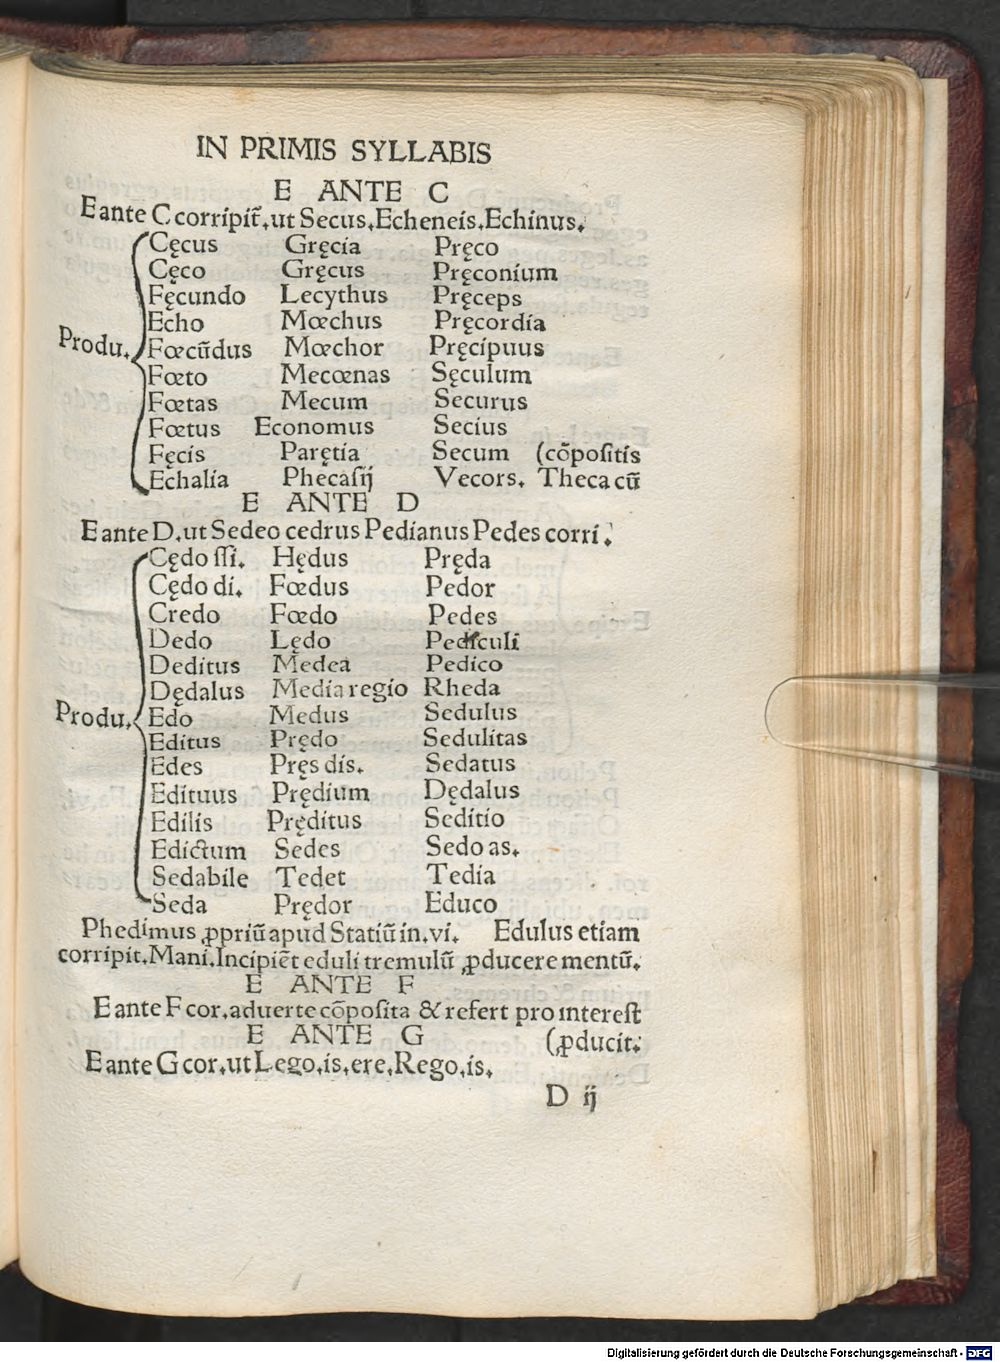 IN PRIMIS SYLLABIS
E ANTE C
E ante C corripit᷑.ut Secus.Echeneis.Echinus.
Cęcus Gręcia Pręco
Cęco Gręcus Pręconium
Fęcundo Lecythus Pręceps
Echo Mœchus Pręcordia
Produ. Fœcūdus Mœchor Pręcipuus
Fœto Mecœnas Sęculum
Fœtas Mecum Securus
Fœtus Economus Secius
Fęcis Parętia Secum (cōpositis
Echalia Phecasij Vecors. Theca cū
E ANTE D
E ante D.ut Sedeo cedrus Pedianus Pedes corri.
Cędo ssi. Hędus Pręda
Cędo di. Fœdus Pedor
Credo Fœdo Pedes
Dedo Lędo Pediculi
Deditus Medea Pedico
Dędalus Media regio Rheda
Produ. Edo Medus Sedulus
Editus Prędo Sedulitas
Edes Pręs dis. Sedatus
Edituus Prędium Dędalus
Edilis Pręditus Seditio
Edictum Sedes Sedo as.
Sedabile Tedet Tedia
Seda Prędor Educo
Phedimus ꝓpriū apud Statiū in.vi. Edulus etiam
corripit.Mani.Incipiēt eduli tremulū ꝓducere mentū.
E ANTE F
E ante F cor.aduerte cōposita & refert pro interest
E ANTE G (ꝓducit.
E ante G cor.ut Lego.is.ere.Rego.is.
D ij
Digitalisierung gefördert durch die Deutsche Forschungsgemeinschaft - DFG